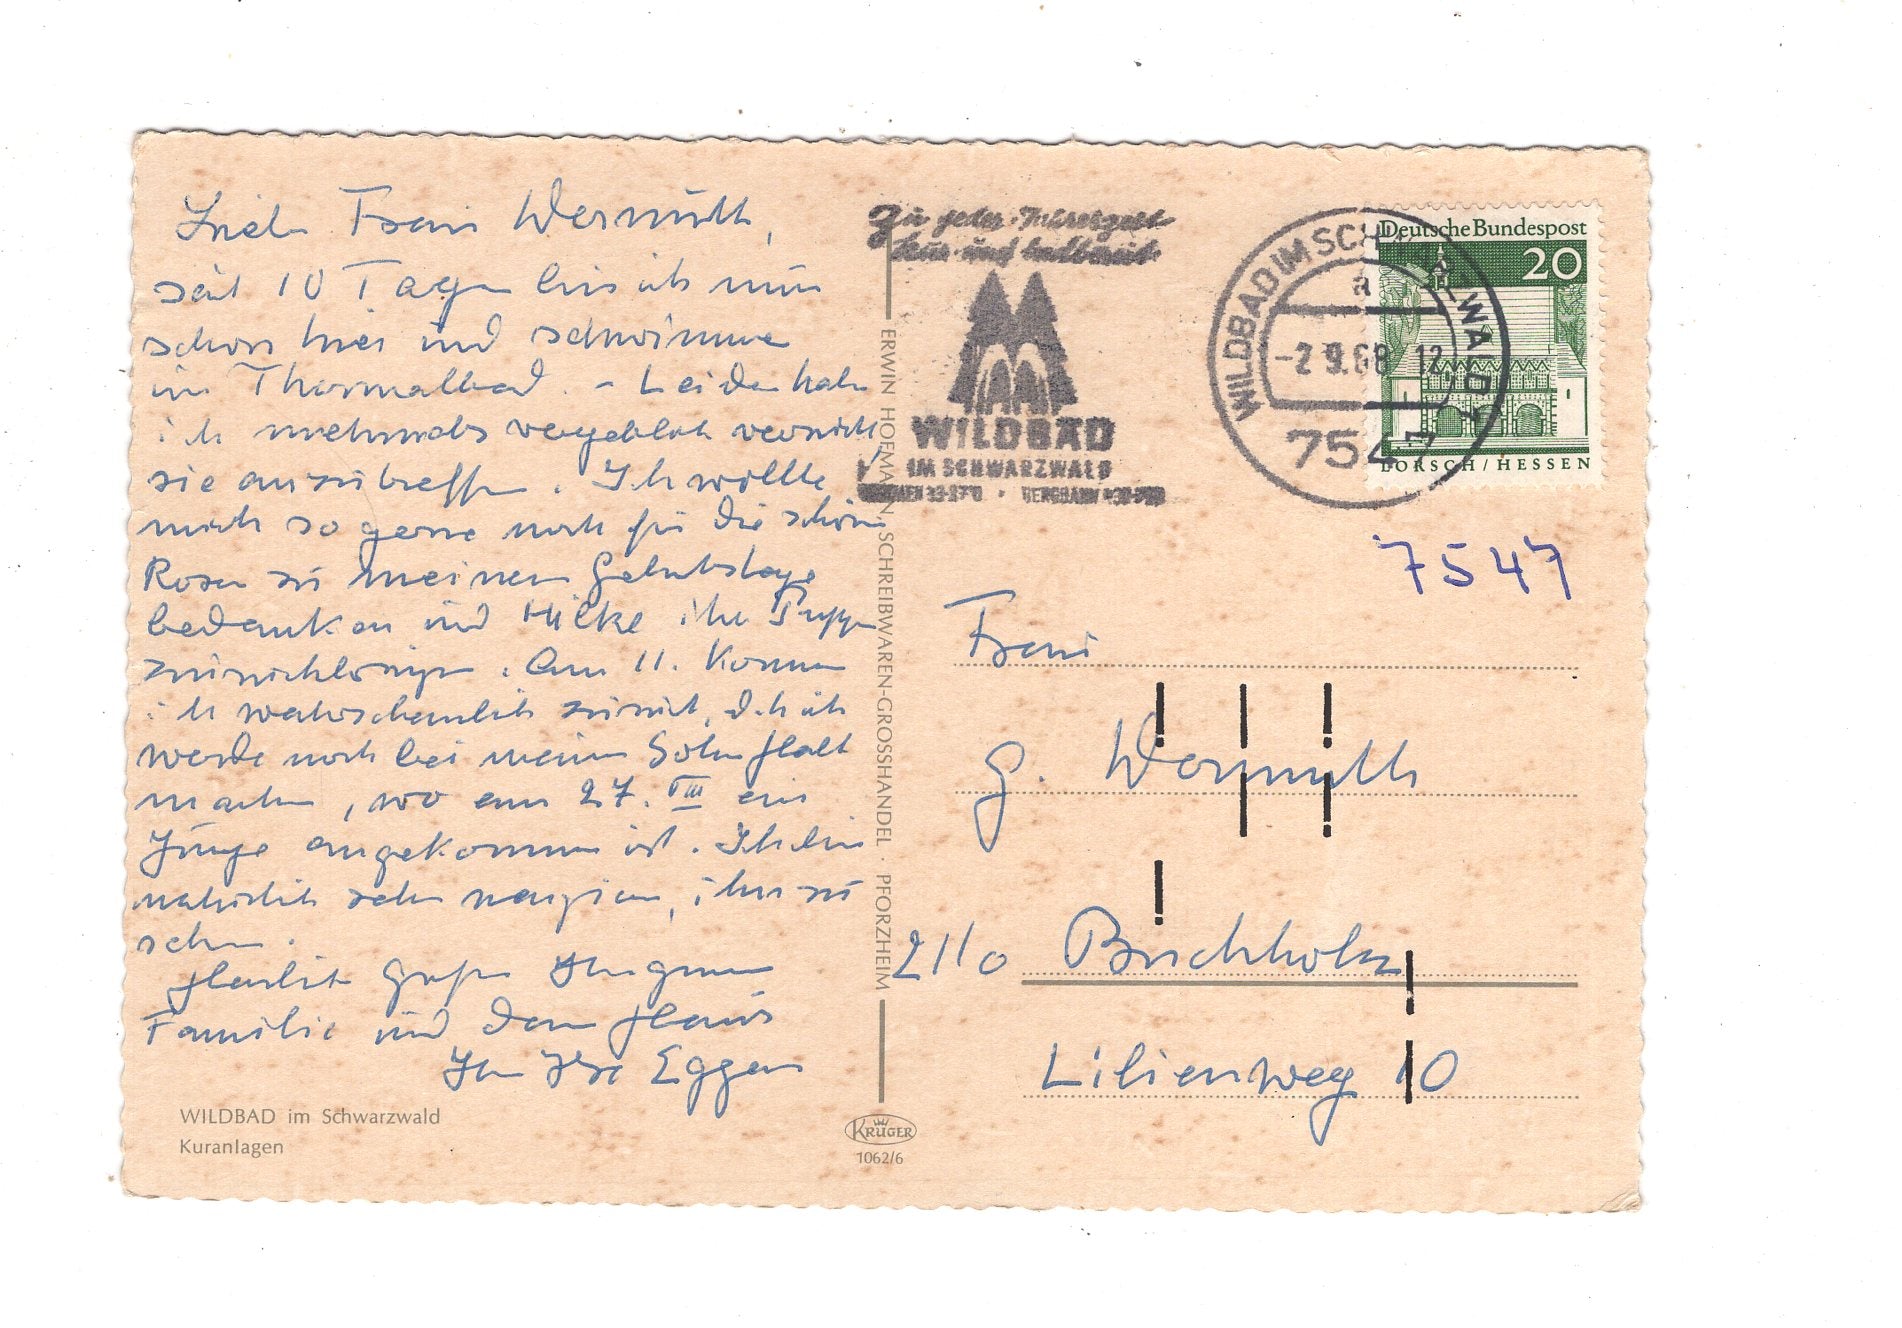 Liebe Frau Wermuth,
seit 10 Tagen bin ich nun
schon hier und schwimme
im Thermalbad. – Leider habe
ich mehrmals vergeblich versucht,
sie anzutreffen. Ich wollte
mich so gerne noch für die schönen
Rosen zu meinem Geburtstage
bedanken und Hilke ihr Puppen
zurückbringen. Am 11. komme
ich wahrscheinlich zurück, d.h. ich
werde noch bei meinem Sohn Halt
machen, wo am 27. VIII ein
Junge angekommen ist. Ich bin
natürlich sehr neugierig, ihn zu
sehen.
Herzlich Grüße Ihrer ganzen
Familie und dem Haus
Ihre Ilse Eggers
WILDBAD im Schwarzwald
Kuranlagen
ERWIN HOFMANN SCHREIBWAREN-GROSSHANDEL · PFORZHEIM
KRÜGER
1062/6
Zu jeder Jahreszeit
kur und badbereit
WILDBAD
IM SCHWARZWALD
WILDBAD IM SCHWARZWALD
a
-2.9.68 12
7547
Deutsche Bundespost
20
LORSCH/HESSEN
7547
Frau
G. Wermuth
2110 Buchholz
Lilienweg 10